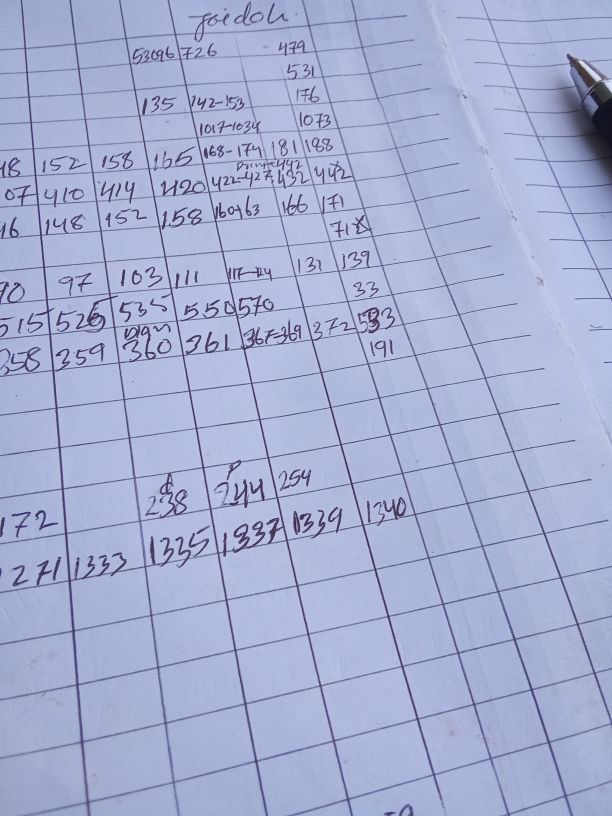 joidoh.
53096 726 479
531
135 142-153 176
1017-1034 1073
48 152 158 165 168-174 181 188
07 410 414 420 422-427, 432 442
46 148 152 158 160-163 166 171
71
90 97 103 111 117-124 131 139
33
515 526 535 550 570
358 359 360 361 367-369 372 533
191
238 244 254
172
1271 1333 1335 1337 1339 1340